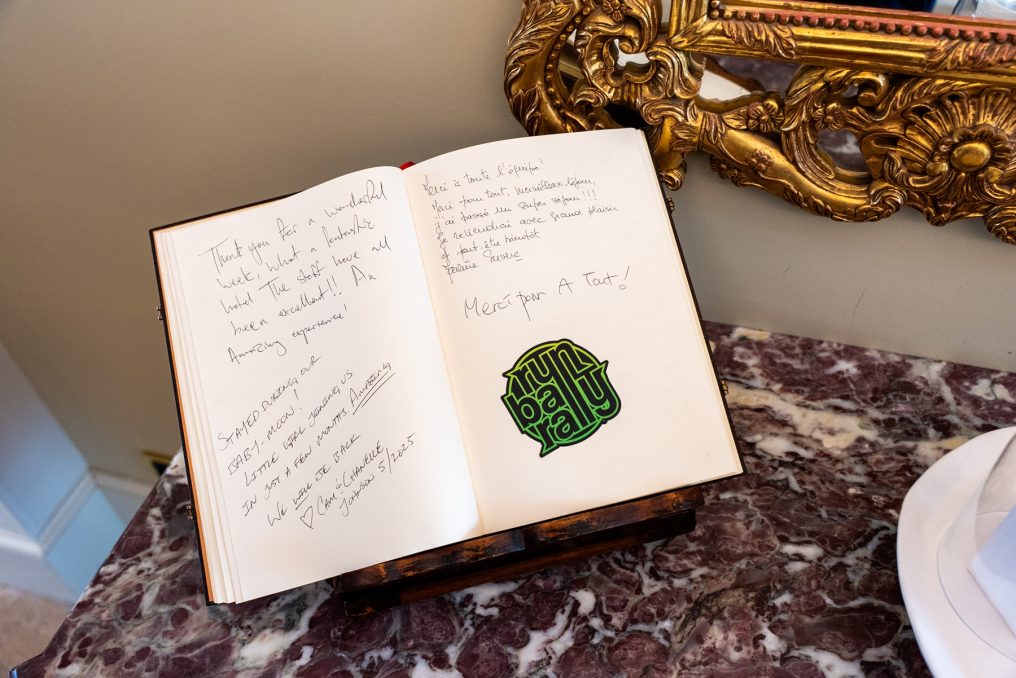 Thank you for a wonderful
week, what a fantastic
hotel. The staff have all
been excellent!! An
Amazing experience!
STAYED DURING OUR
BABY-MOON!
LITTLE GIRL JOINING US
IN JUST A FEW MONTHS. AMAZING
WE WILL BE BACK
♡ CAM & CHANELLE
JOHNSON 5/2025
Merci à toute l'équipe!
Merci pour tout, merveilleux séjour,
j'ai passé un super séjour!!!
Je reviendrai avec grand plaisir
et peut-être bientôt
Merci pour A Tout!
run
ball
rally